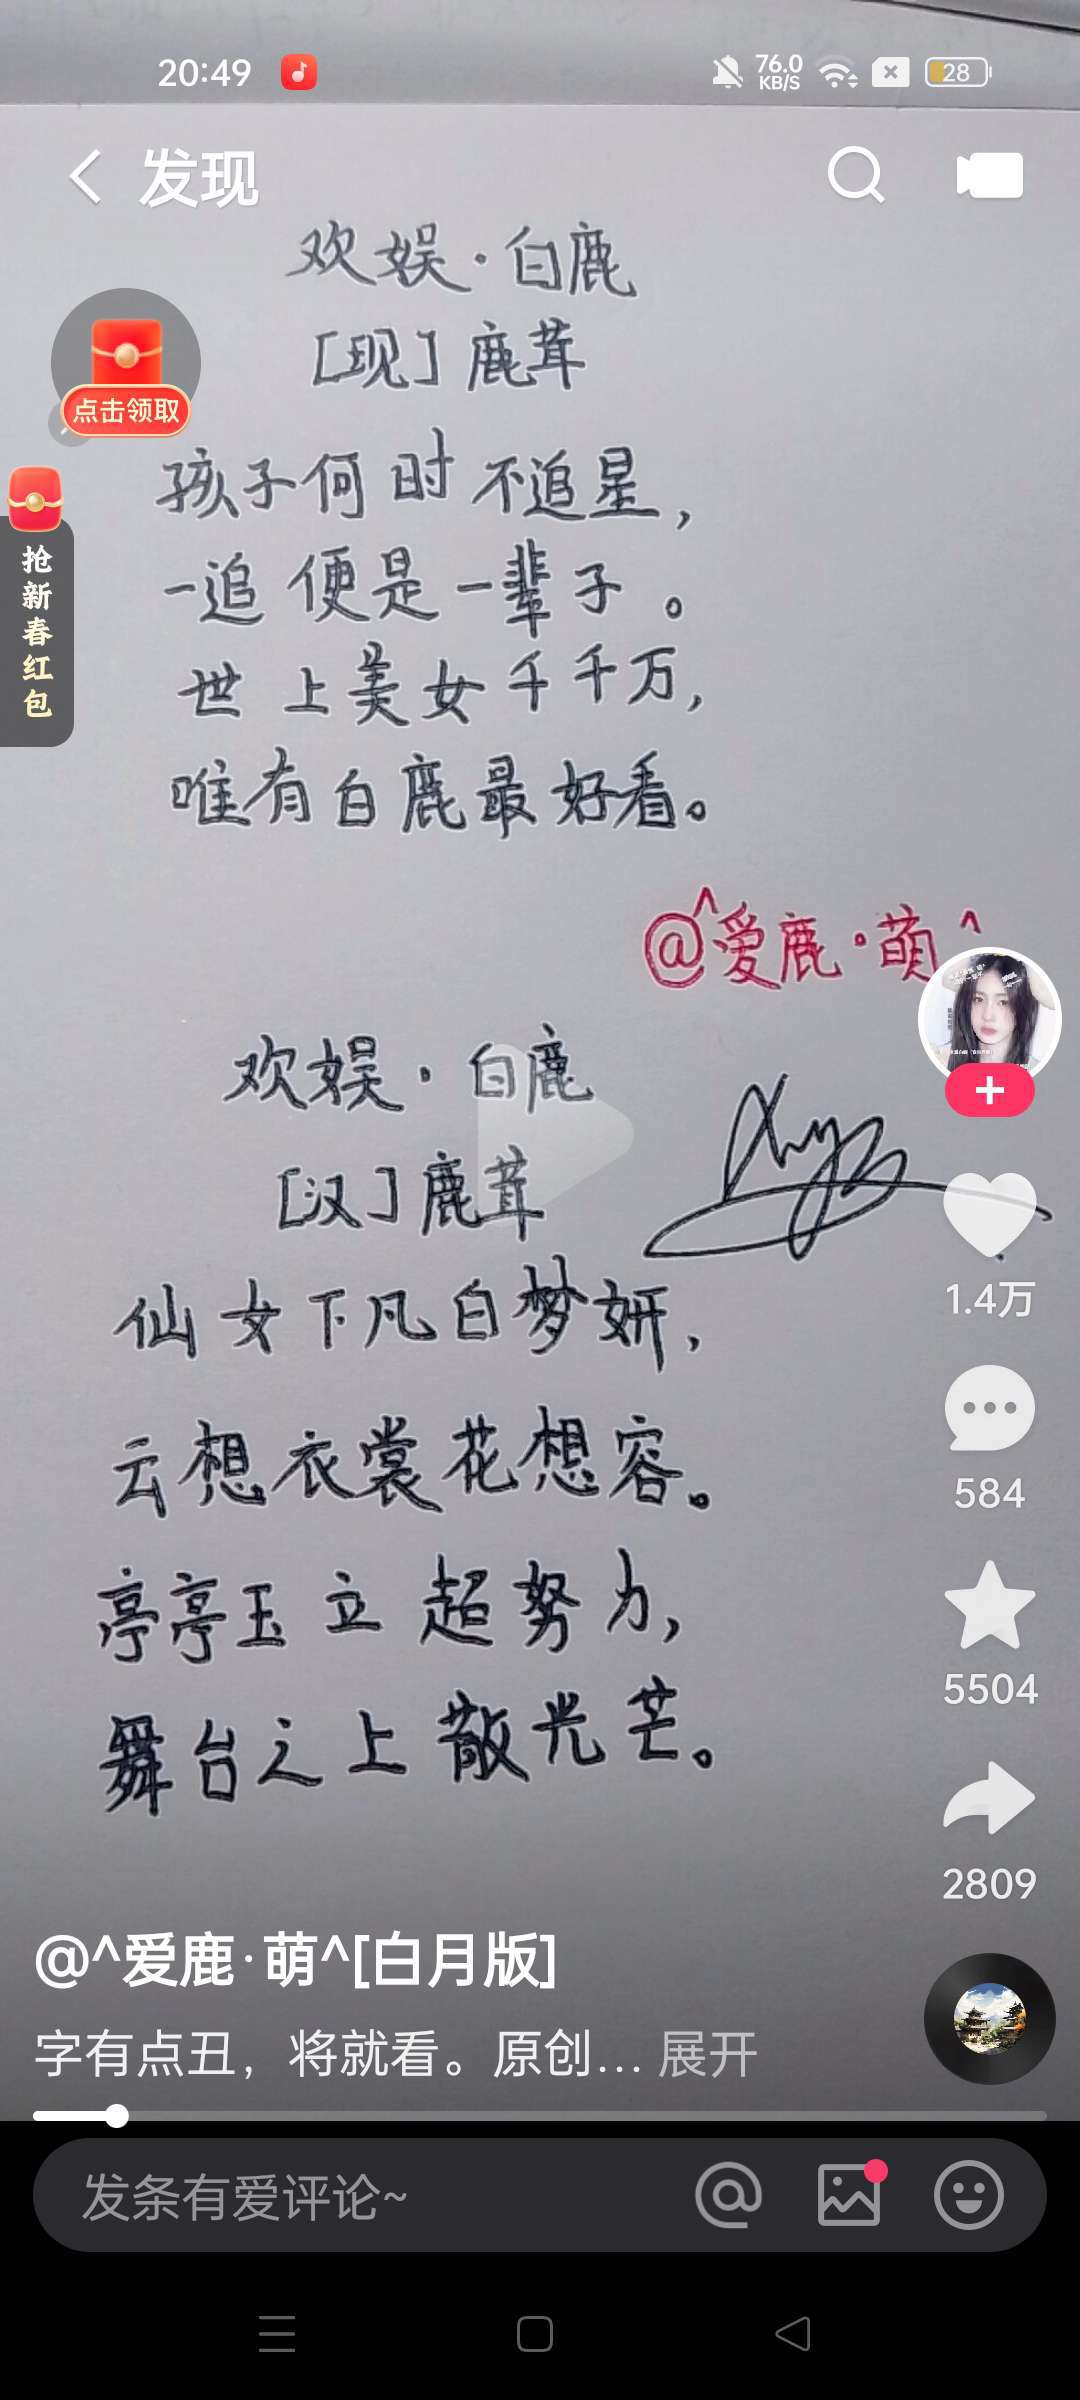 20:49
76.0
KB/S
28
发现
欢娱·白鹿
[现]鹿茸
点击领取
抢新春红包
孩子何时不追星,
一追便是一辈子。
世上美女千千万,
唯有白鹿最好看。
@^爱鹿·萌^
欢娱·白鹿
[汉]鹿茸
仙女下凡白梦妍,
云想衣裳花想容。
亭亭玉立超努力,
舞台之上散光芒。
1.4万
584
5504
2809
@^爱鹿·萌^[白月版]
字有点丑，将就看。原创... 展开
发条有爱评论~